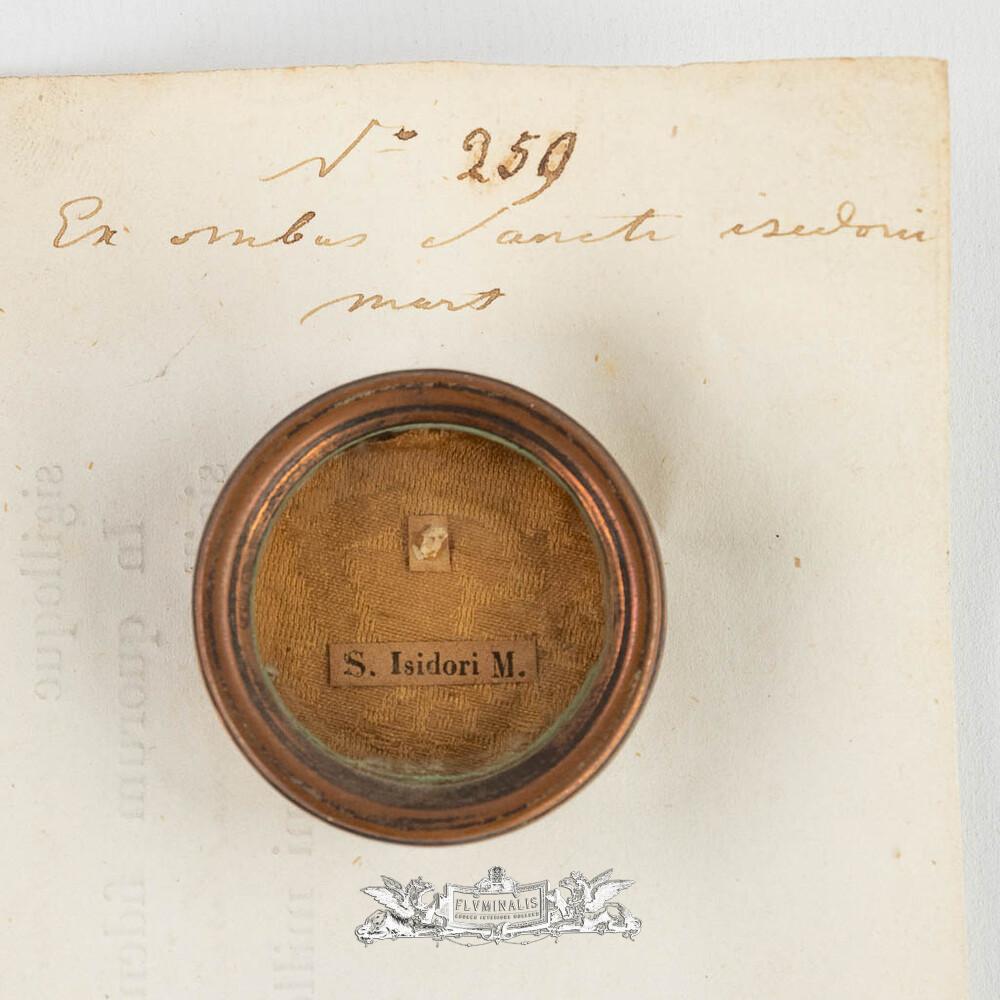 No 259
Ex ossibus Sancti isidori
mart
S. Isidori M.
FLVMINALIS